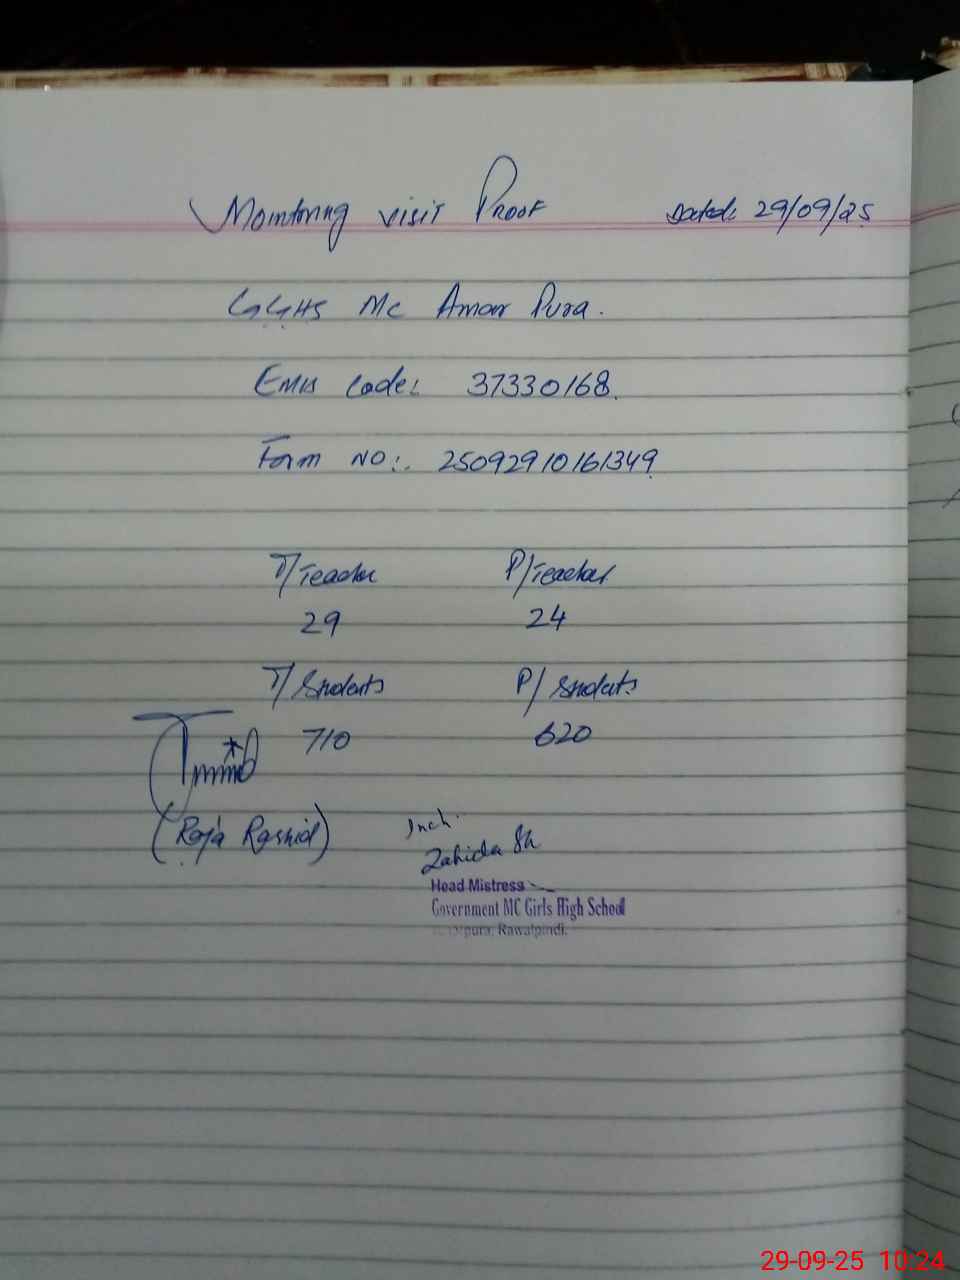 Monitoring visit Proof Dated: 29/09/25
GGHS MC Amar Pura.
Emis Code: 37330168.
Form NO:. 25092910161349
T/Teacher P/Teacher
29 24
T/Students P/Students
710 620
(Raja Rashid)
Inch.
Zahida
Head Mistress
Government MC Girls High School
pura, Rawalpindi.
29-09-25 10:24